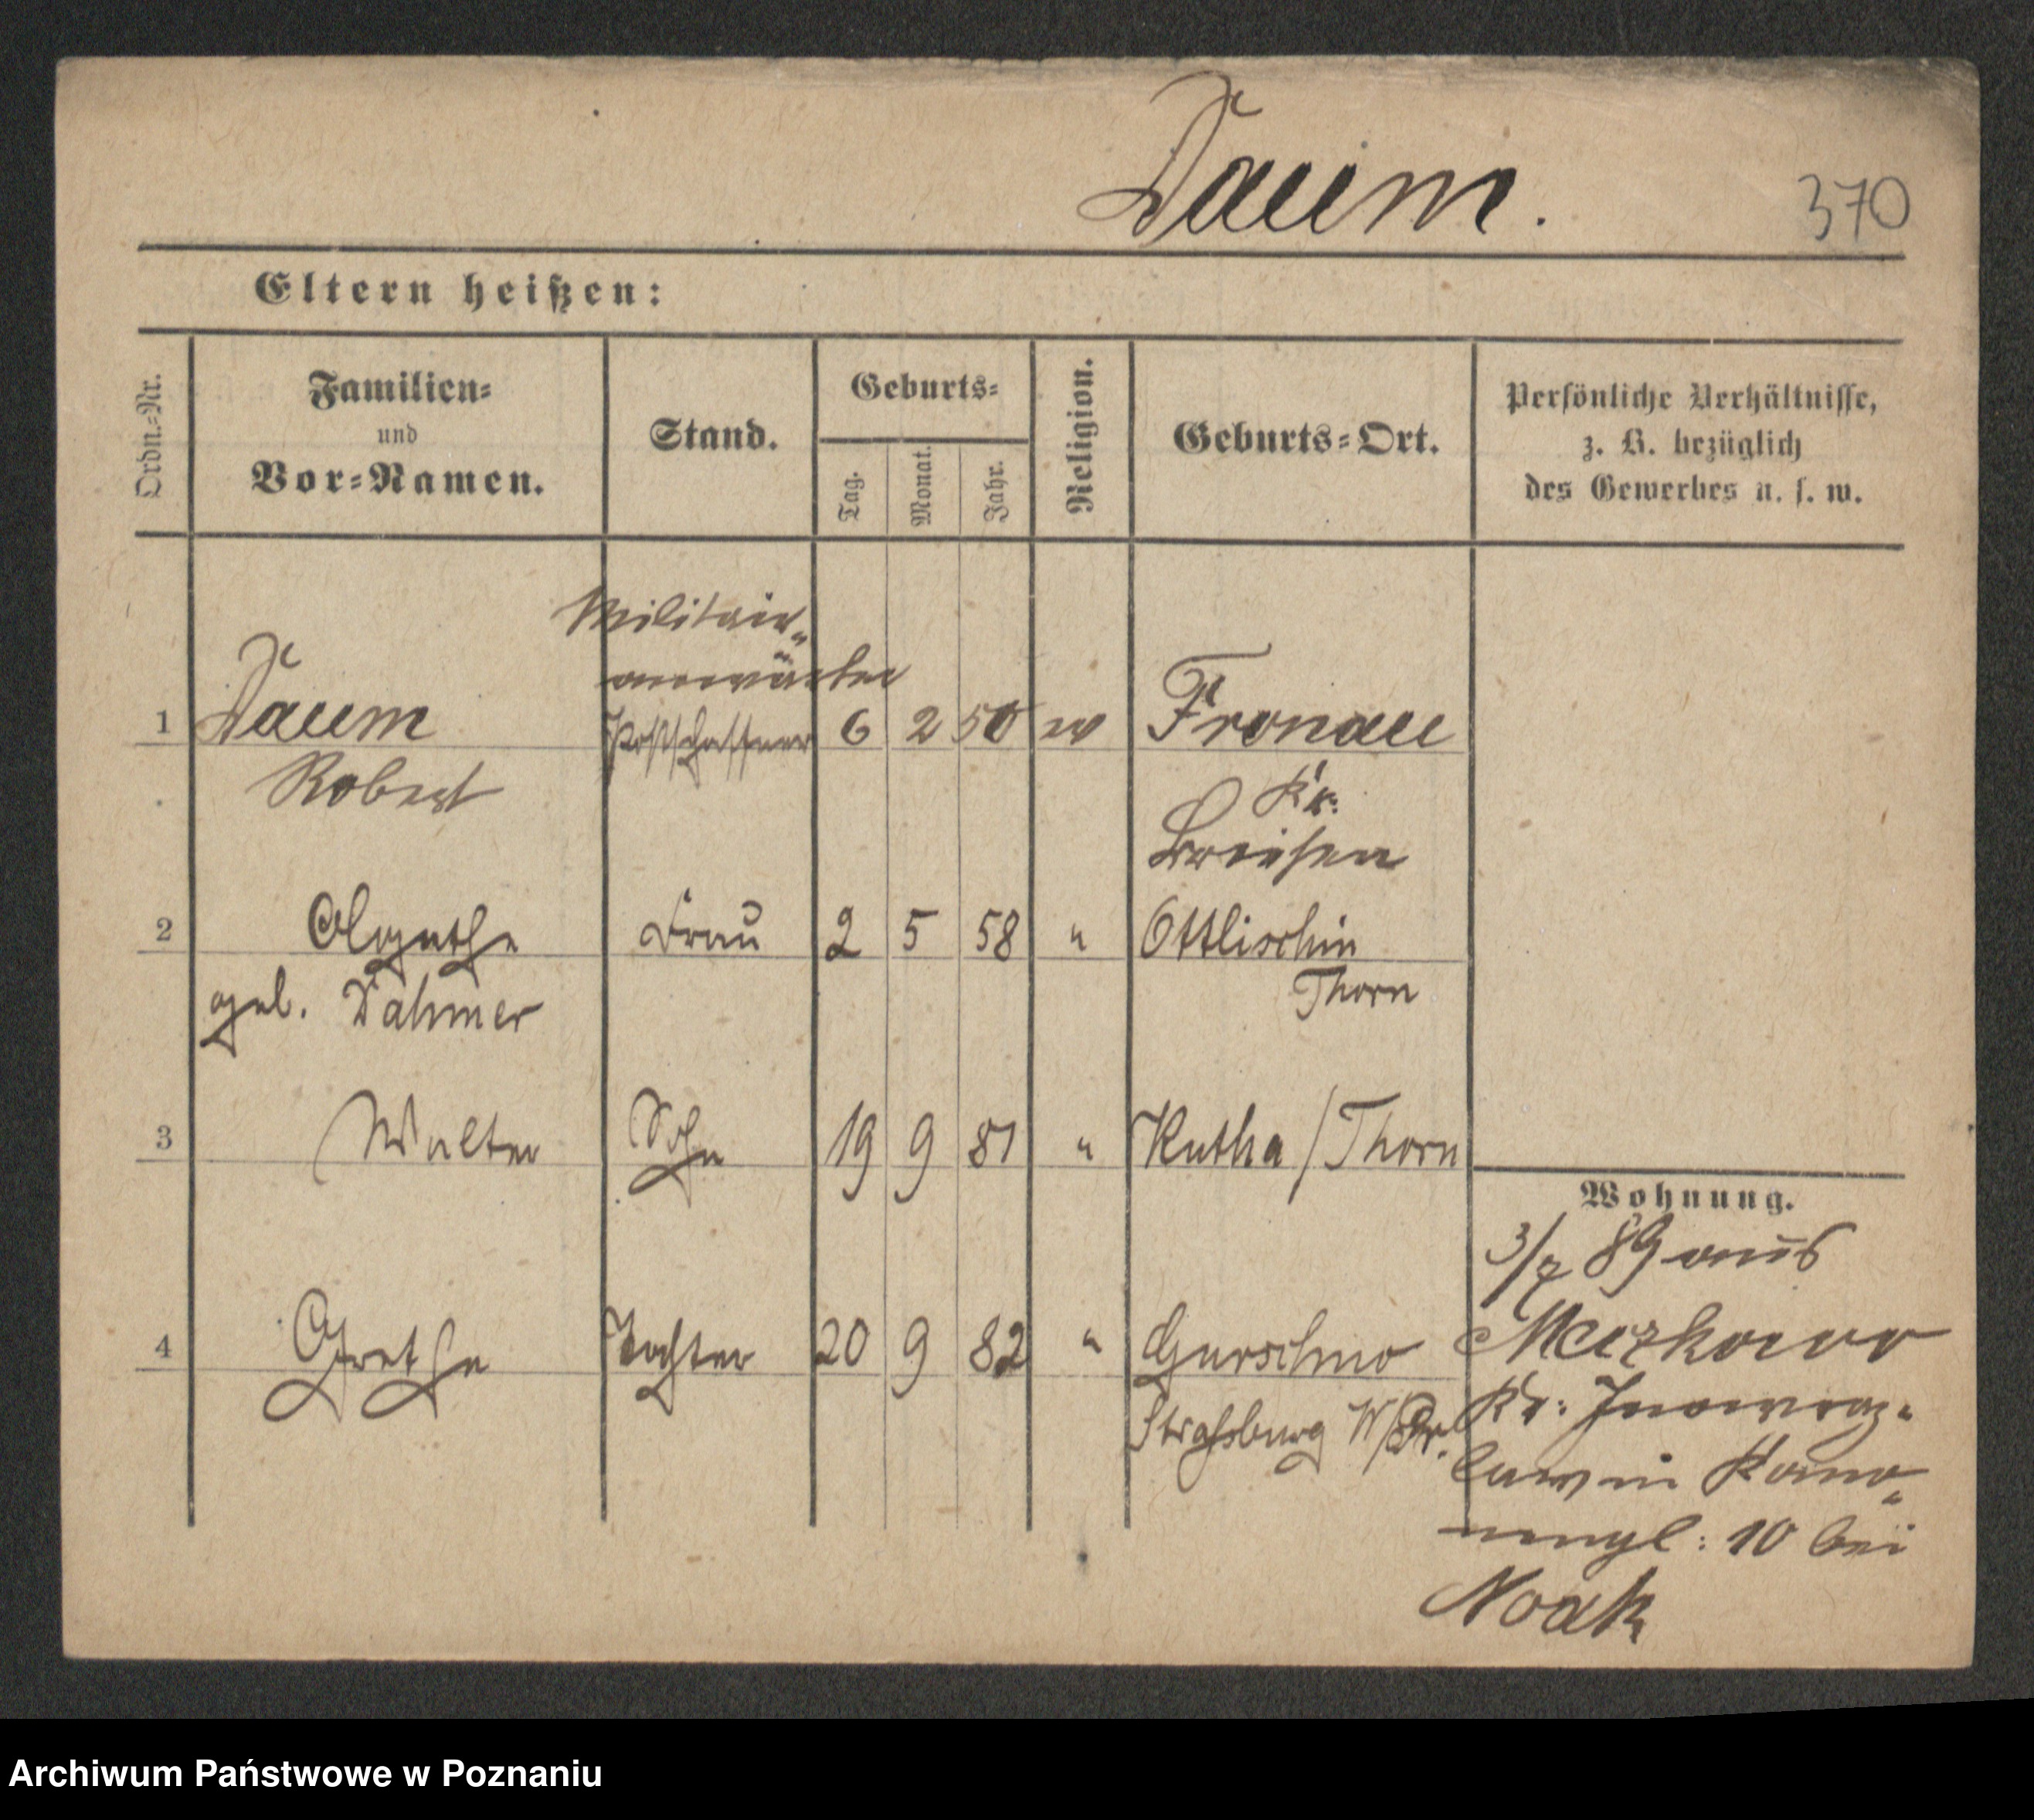 Daum.
370
Eltern heißen:
Ordn.-Nr.
Familien-
und
Vor-Namen.
Stand.
Geburts-
Tag.
Monat.
Jahr.
Religion.
Geburts-Ort.
Persönliche Verhältnisse,
z. B. bezüglich
des Gewerbes u. s. w.
Militair-
anwärter
1 Daum Postschaffner 6 2 50 ev Fronau
Robert Kr:
Briesen
2 Agathe Frau 2 5 58 " Ottlischin
geb. Dahmer Thorn
3 Walter Sohn 19 9 81 " Kutha / Thorn
Wohnung.
3/7 89 aus
4 Grethe Tochter 20 9 82 "
Strassburg W/Pr.
Kr: Inowraz-
law in
10 bei
Noak
Archiwum Państwowe w Poznaniu